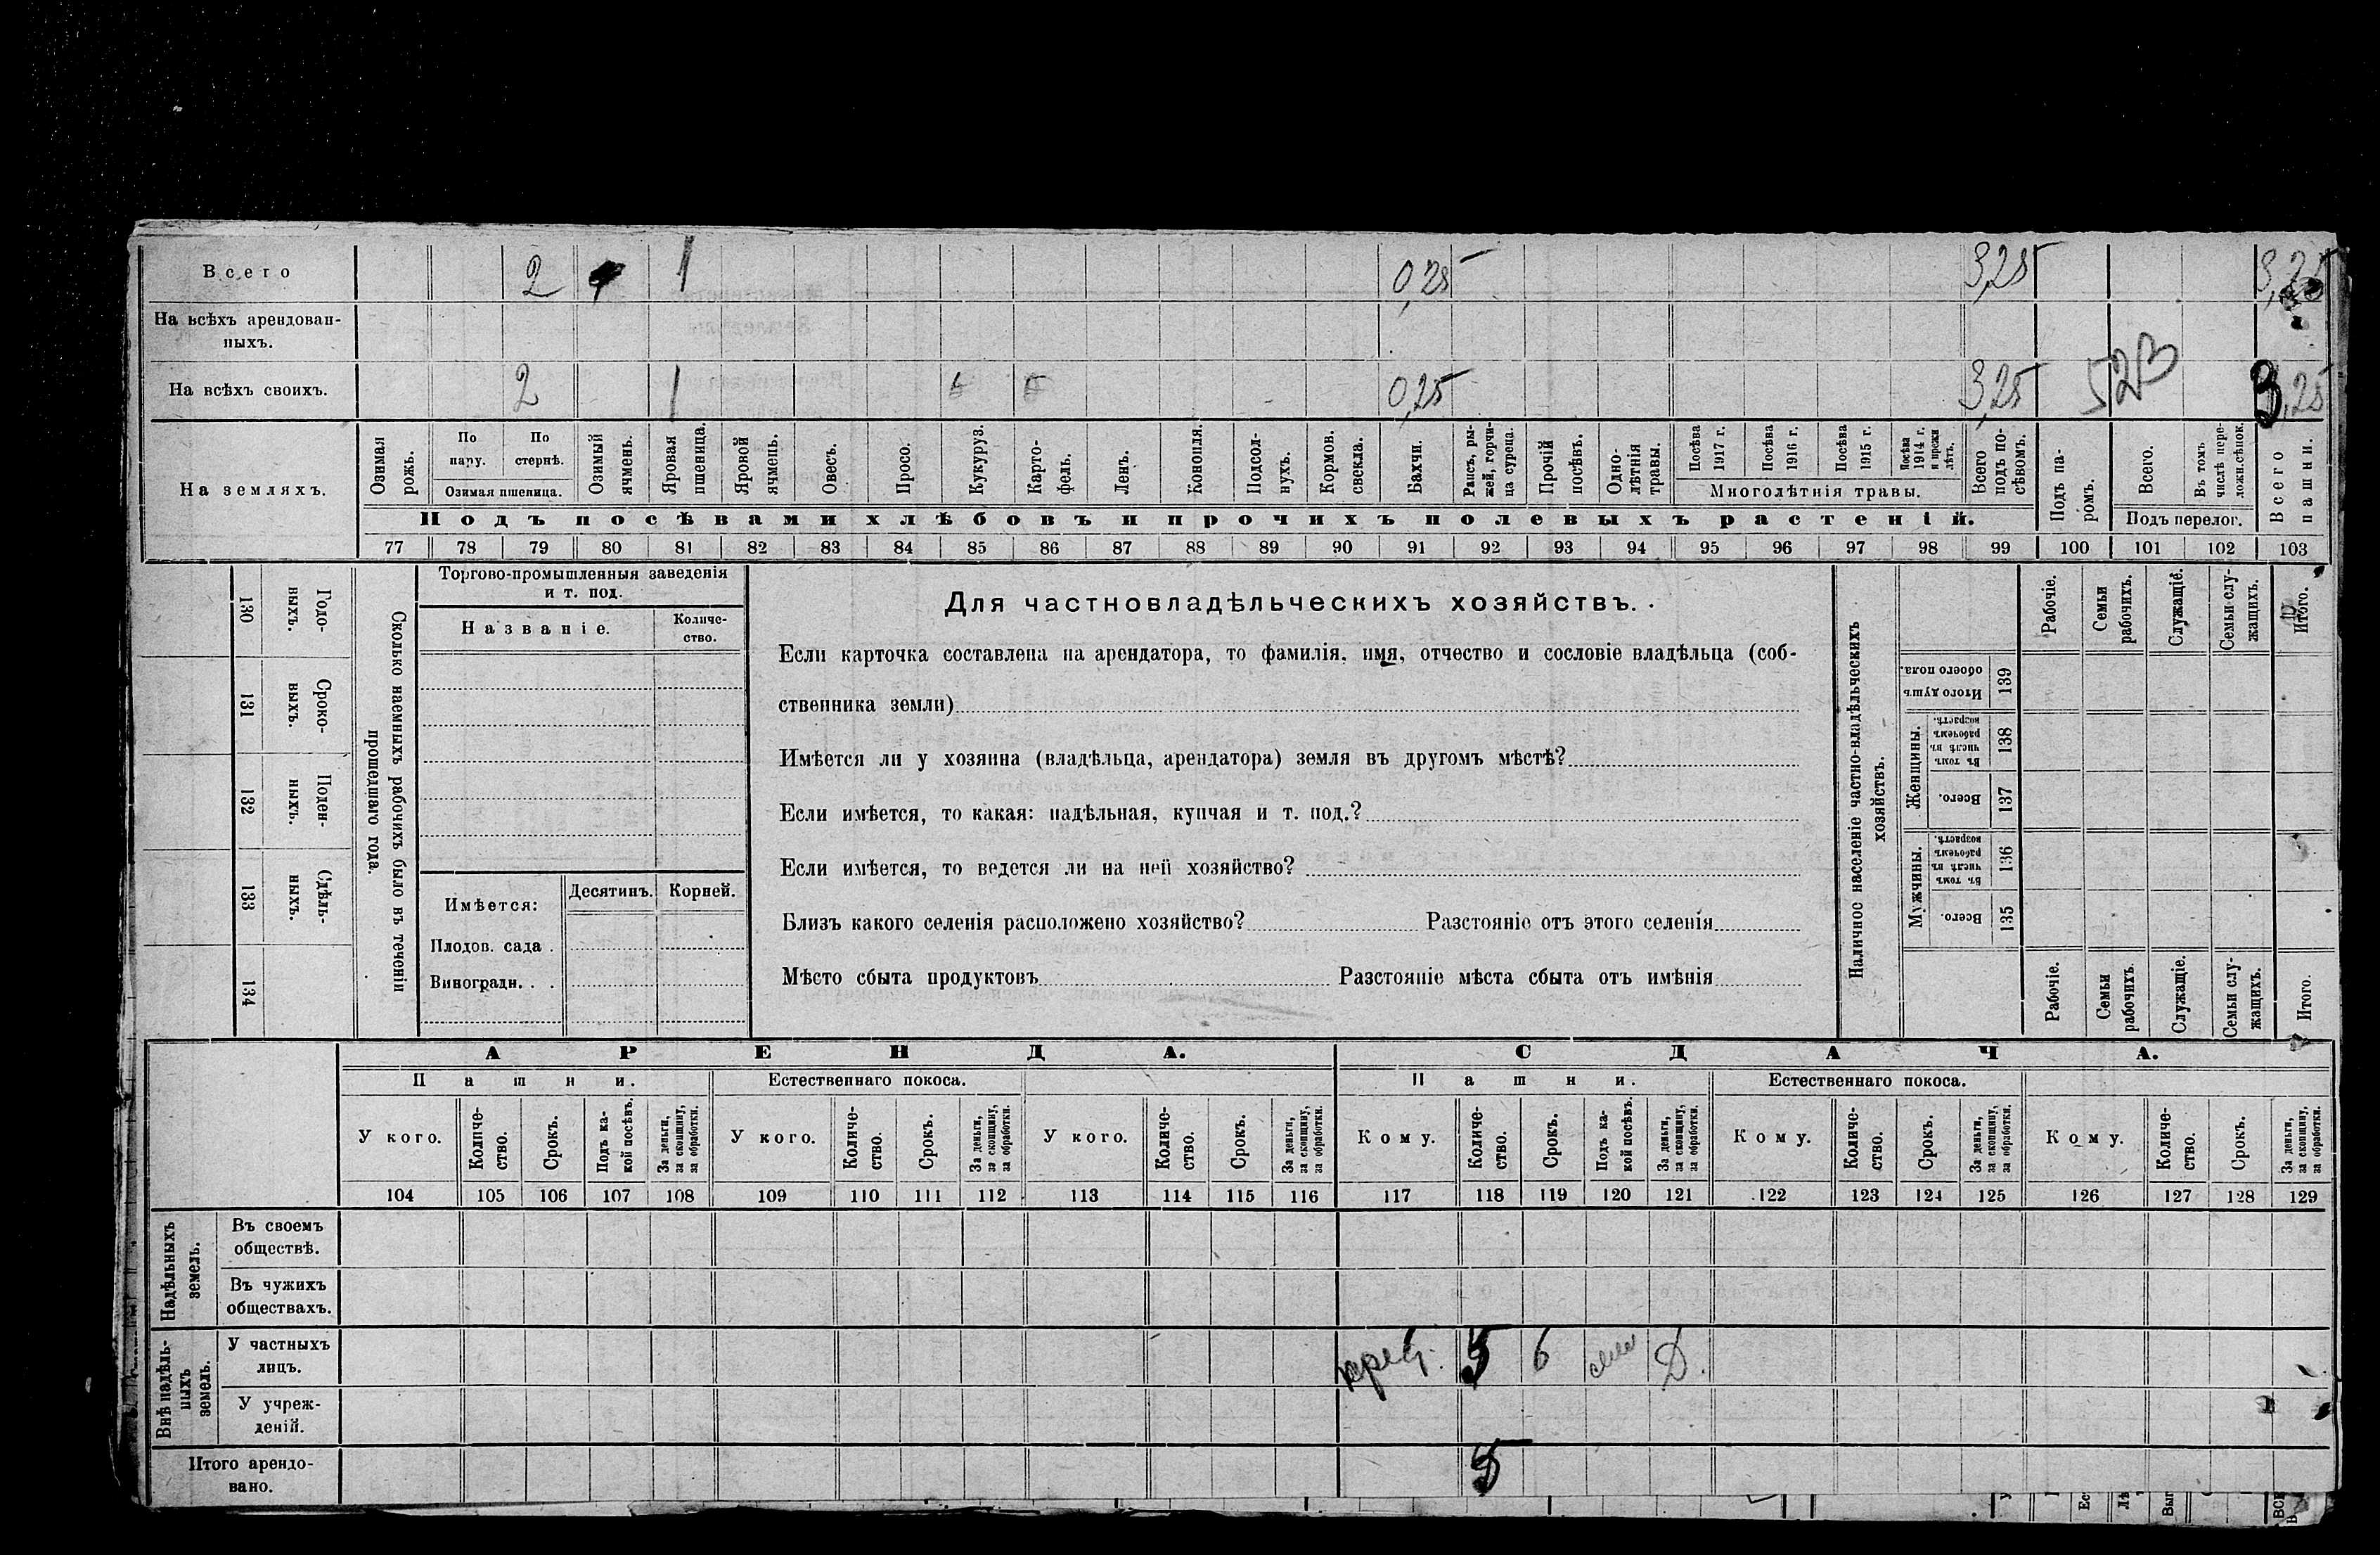 Всего 2 1 0,25 3,25 3,25
На всѣхъ арендован-
ныхъ.
На всѣхъ своихъ. 2 1 0,25 3,25 523 3,25
На земляхъ.
Озимая рожь.
По пару.
По стернѣ.
Озимая пшеница.
Озимый ячмень.
Яровая пшеница.
Яровой ячмень.
Овесъ.
Просо.
Кукуруз.
Карто-
фель.
Ленъ.
Конопля.
Подсол-
нухъ.
Кормов. свекла.
Бахчи.
Рапсъ, ры-
жей, горчи-
ца сурепа.
Прочій посѣвъ.
Одно-
лѣтнія травы.
Посѣва 1917 г.
Посѣва 1916 г.
Посѣва 1915 г.
Посѣва 1914 г. и прежн лѣтъ.
Многолѣтнія травы.
Всего подъ по-
сѣвомъ.
Подъ па-
ромъ.
Всего.
Въ томъ числѣ пере-
ложн.сѣнок.
Подъ перелог.
Всего пашни.
Подъ посѣвами хлѣбовъ и прочихъ полевыхъ растеній.
77 78 79 80 81 82 83 84 85 86 87 88 89 90 91 92 93 94 95 96 97 98 99 100 101 102 103
130 Годо-
выхъ.
131 Сроко-
выхъ.
132 Поден-
ныхъ.
133 Сдѣль-
ныхъ.
134
Сколько наемныхъ рабочихъ было въ теченіи
прошедшаго года.
Торгово-промышленныя заведенія
и т. под.
Названіе.
Количе-
ство.
Имѣется: Десятинъ. Корней.
Плодов. сада .
Виноградн. . .
Для частновладѣльческихъ хозяйствъ.
Если карточка составлена на арендатора, то фамилія, имя, отчество и сословіе владѣльца (соб-
ственника земли)
Имѣется ли у хозяина (владѣльца, арендатора) земля въ другомъ мѣстѣ?
Если имѣется, то какая: надѣльная, купчая и т. под.?
Если имѣется, то ведется ли на ней хозяйство?
Близъ какого селенія расположено хозяйство? Разстояніе отъ этого селенія
Мѣсто сбыта продуктовъ Разстояніе мѣста сбыта отъ имѣнія
Наличное населеніе частно-владѣльческихъ
хозяйствъ.
Рабочіе.
Семьи рабочихъ.
Служащіе.
Семьи слу-
жащихъ.
Итого.
Итого душъ обоего пола. 139
Женщины.
Въ томъ числѣ въ рабочемъ возрастѣ. 138
Всего. 137
Мужчины.
Въ томъ числѣ въ рабочемъ возрастѣ. 136
Всего. 135
Рабочіе.
Семьи рабочихъ.
Служащіе.
Семьи слу-
жащихъ.
Итого.
АРЕНДА. СДАЧА.
Пашни. Естественнаго покоса. Пашни. Естественнаго покоса.
У кого.
Количе-
ство.
Срокъ.
Подъ ка-
кой посѣвъ.
За деньги,
за скопщину,
за обработки.
У кого.
Количе-
ство.
Срокъ.
За деньги,
за скопщину,
за обработки.
У кого.
Количе-
ство.
Срокъ.
За деньги,
за скопщину,
за обработки.
Кому.
Количе-
ство.
Срокъ.
Подъ ка-
кой посѣвъ.
За деньги,
за скопщину,
за обработки.
Кому.
Количе-
ство.
Срокъ.
За деньги,
за скопщину,
за обработки.
Кому.
Количе-
ство.
Срокъ.
За деньги,
за скопщину,
за обработки.
104 105 106 107 108 109 110 111 112 113 114 115 116 117 118 119 120 121 122 123 124 125 126 127 128 129
Надѣльныхъ
земель.
Въ своемъ
обществѣ.
Въ чужихъ
обществахъ.
Внѣ надѣль-
ныхъ
земель.
У частныхъ
лицъ.
5 6 Д.
У учреж-
деній.
Итого арендо-
вано.
5